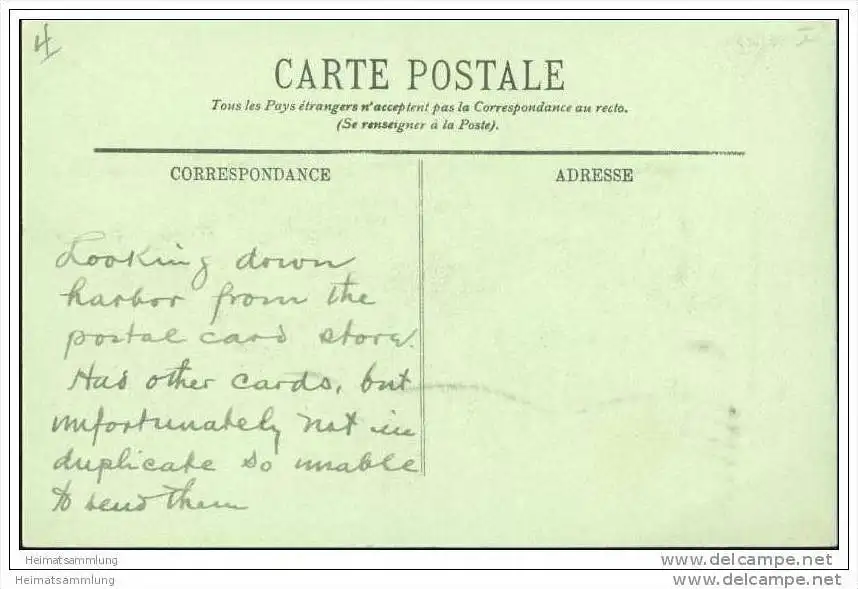 4
CARTE POSTALE
Tous les Pays étrangers n'acceptent pas la Correspondance au recto.
(Se renseigner à la Poste).
CORRESPONDANCE
ADRESSE
Looking down
harbor from the
postal card store.
Has other cards, but
unfortunately not in
duplicate so unable
to send them
Heimatsammlung
www.delcampe.net
Heimatsammlung
www.delcampe.net